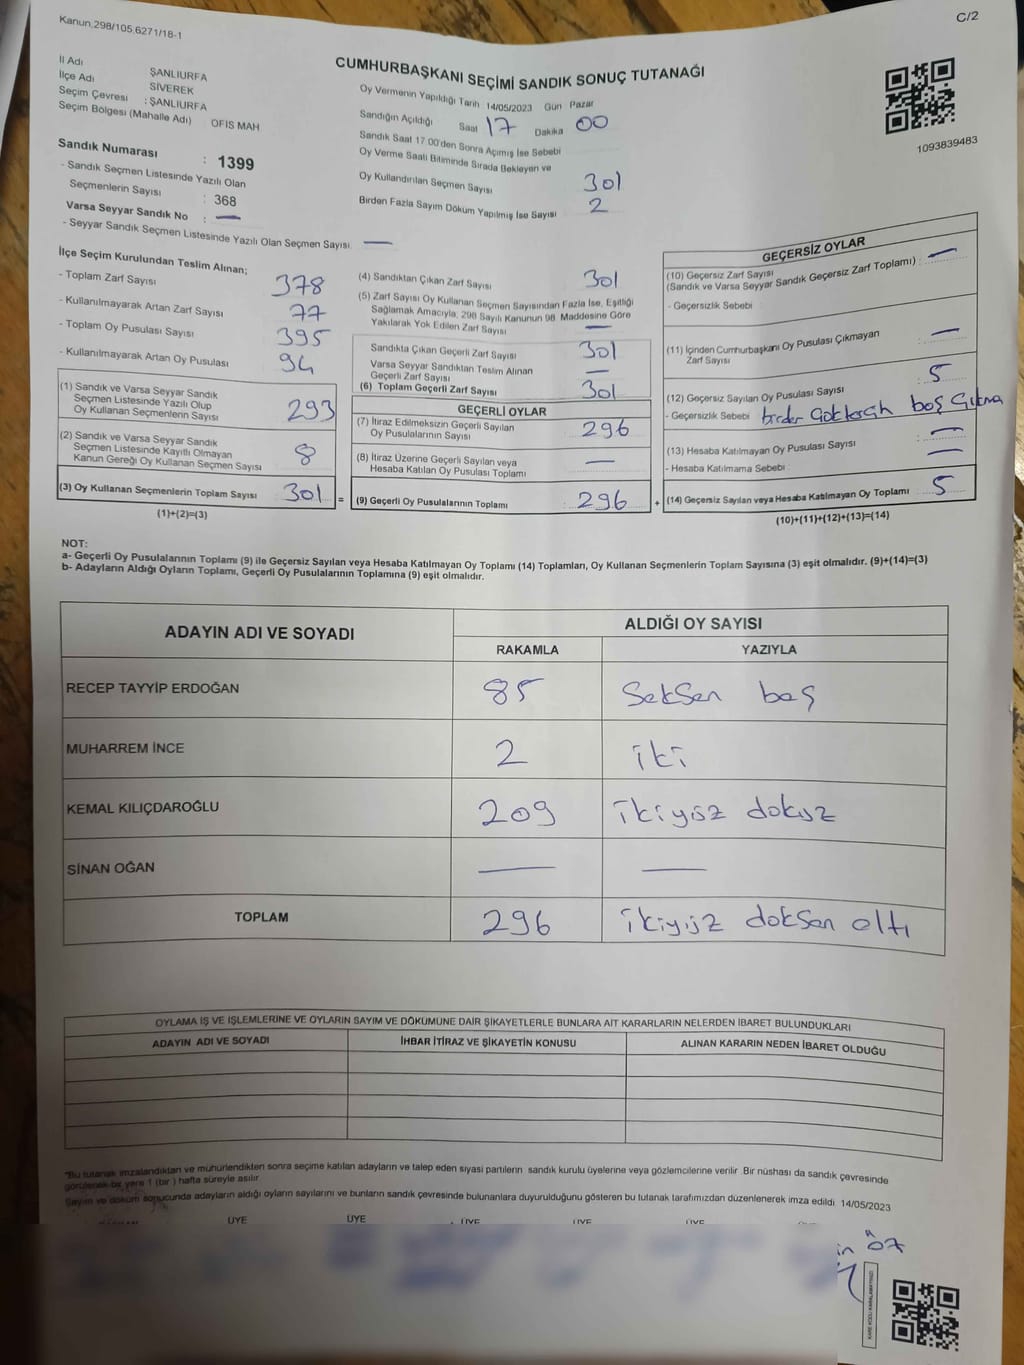 Kanun.298/105.6271/18-1
C/2
CUMHURBAŞKANI SEÇİMİ SANDIK SONUÇ TUTANAĞI
İl Adı ŞANLIURFA
İlçe Adı SİVEREK
Seçim Çevresi : ŞANLIURFA
Seçim Bölgesi (Mahalle Adı) OFİS MAH
Sandık Numarası : 1399
- Sandık Seçmen Listesinde Yazılı Olan
Seçmenlerin Sayısı : 368
Varsa Seyyar Sandık No : —
- Seyyar Sandık Seçmen Listesinde Yazılı Olan Seçmen Sayısı —
Oy Vermenin Yapıldığı Tarih 14/05/2023 Gün Pazar
Sandığın Açıldığı Saat 17 Dakika 00
Sandık Saat 17:00'den Sonra Açımış İse Sebebi
Oy Verme Saati Bitiminde Sırada Bekleyen ve
Oy Kullandırılan Seçmen Sayısı 301
Birden Fazla Sayım Döküm Yapılmış İse Sayısı 2
1093839483
İlçe Seçim Kurulundan Teslim Alınan;
- Toplam Zarf Sayısı 378
- Kullanılmayarak Artan Zarf Sayısı 77
- Toplam Oy Pusulası Sayısı 395
- Kullanılmayarak Artan Oy Pusulası 94
(1) Sandık ve Varsa Seyyar Sandık
Seçmen Listesinde Yazılı Olup
Oy Kullanan Seçmenlerin Sayısı 293
(2) Sandık ve Varsa Seyyar Sandık
Seçmen Listesinde Kayıtlı Olmayan
Kanun Gereği Oy Kullanan Seçmen Sayısı 8
(3) Oy Kullanan Seçmenlerin Toplam Sayısı 301 =
(1)+(2)=(3)
(4) Sandıktan Çıkan Zarf Sayısı 301
(5) Zarf Sayısı Oy Kullanan Seçmen Sayısından Fazla İse, Eşitliği
Sağlamak Amacıyla, 298 Sayılı Kanunun 98. Maddesine Göre
Yakılarak Yok Edilen Zarf Sayısı —
Sandıkta Çıkan Geçerli Zarf Sayısı 301
Varsa Seyyar Sandıktan Teslim Alınan
Geçerli Zarf Sayısı —
(6) Toplam Geçerli Zarf Sayısı 301
GEÇERLİ OYLAR
(7) İtiraz Edilmeksizin Geçerli Sayılan
Oy Pusulalarının Sayısı 296
(8) İtiraz Üzerine Geçerli Sayılan veya
Hesaba Katılan Oy Pusulası Toplamı —
(9) Geçerli Oy Pusulalarının Toplamı : 296 +
GEÇERSİZ OYLAR
(10) Geçersiz Zarf Sayısı
(Sandık ve Varsa Seyyar Sandık Geçersiz Zarf Toplamı) : —
- Geçersizlik Sebebi :
(11) İçinden Cumhurbaşkanı Oy Pusulası Çıkmayan
Zarf Sayısı : —
(12) Geçersiz Sayılan Oy Pusulası Sayısı : 5
- Geçersizlik Sebebi boş Çıkma
(13) Hesaba Katılmayan Oy Pusulası Sayısı : —
- Hesaba Katılmama Sebebi : —
(14) Geçersiz Sayılan veya Hesaba Katılmayan Oy Toplamı : 5
(10)+(11)+(12)+(13)=(14)
NOT:
a- Geçerli Oy Pusulalarının Toplamı (9) ile Geçersiz Sayılan veya Hesaba Katılmayan Oy Toplamı (14) Toplamları, Oy Kullanan Seçmenlerin Toplam Sayısına (3) eşit olmalıdır. (9)+(14)=(3)
b- Adayların Aldığı Oyların Toplamı, Geçerli Oy Pusulalarının Toplamına (9) eşit olmalıdır.
ADAYIN ADI VE SOYADI
ALDIĞI OY SAYISI
RAKAMLA YAZIYLA
RECEP TAYYİP ERDOĞAN 85 Seksen beş
MUHARREM İNCE 2 iki
KEMAL KILIÇDAROĞLU 209 ikiyüz dokuz
SİNAN OĞAN — —
TOPLAM 296 ikiyüz doksan altı
OYLAMA İŞ VE İŞLEMLERİNE VE OYLARIN SAYIM VE DÖKÜMÜNE DAİR ŞİKAYETLERLE BUNLARA AİT KARARLARIN NELERDEN İBARET BULUNDUKLARI
ADAYIN ADI VE SOYADI İHBAR İTİRAZ VE ŞİKAYETİN KONUSU ALINAN KARARIN NEDEN İBARET OLDUĞU
*Bu tutanak imzalandıktan ve mühürlendikten sonra seçime katılan adayların ve talep eden siyasi partilerin sandık kurulu üyelerine veya gözlemcilerine verilir. Bir nüshası da sandık çevresinde
görülecek bir yere 1 (bir) hafta süreyle asılır.
Sayım ve döküm sonucunda adayların aldığı oyların sayılarını ve bunların sandık çevresinde bulunanlara duyurulduğunu gösteren bu tutanak tarafımızdan düzenlenerek imza edildi 14/05/2023
ÜYE ÜYE ÜYE ÜYE ÜYE